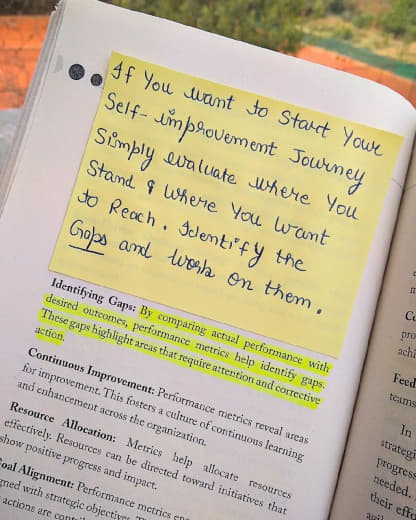 If You want to Start Your
Self-improvement Journey
Simply evaluate where You
Stand & where You want
to Reach. Identify the
Gaps and work on them.
Identifying Gaps: By comparing actual performance with
desired outcomes, performance metrics help identify gaps.
These gaps highlight areas that require attention and corrective
action.
Continuous Improvement: Performance metrics reveal areas
for improvement. This fosters a culture of continuous learning
and enhancement across the organization.
Resource Allocation: Metrics help allocate resources
effectively. Resources can be directed toward initiatives that
show positive progress and impact.
Alignment: Performance metrics
with strategic objectives.
actions are
Feed
teams
In
strategi
progress
needed,
their effo